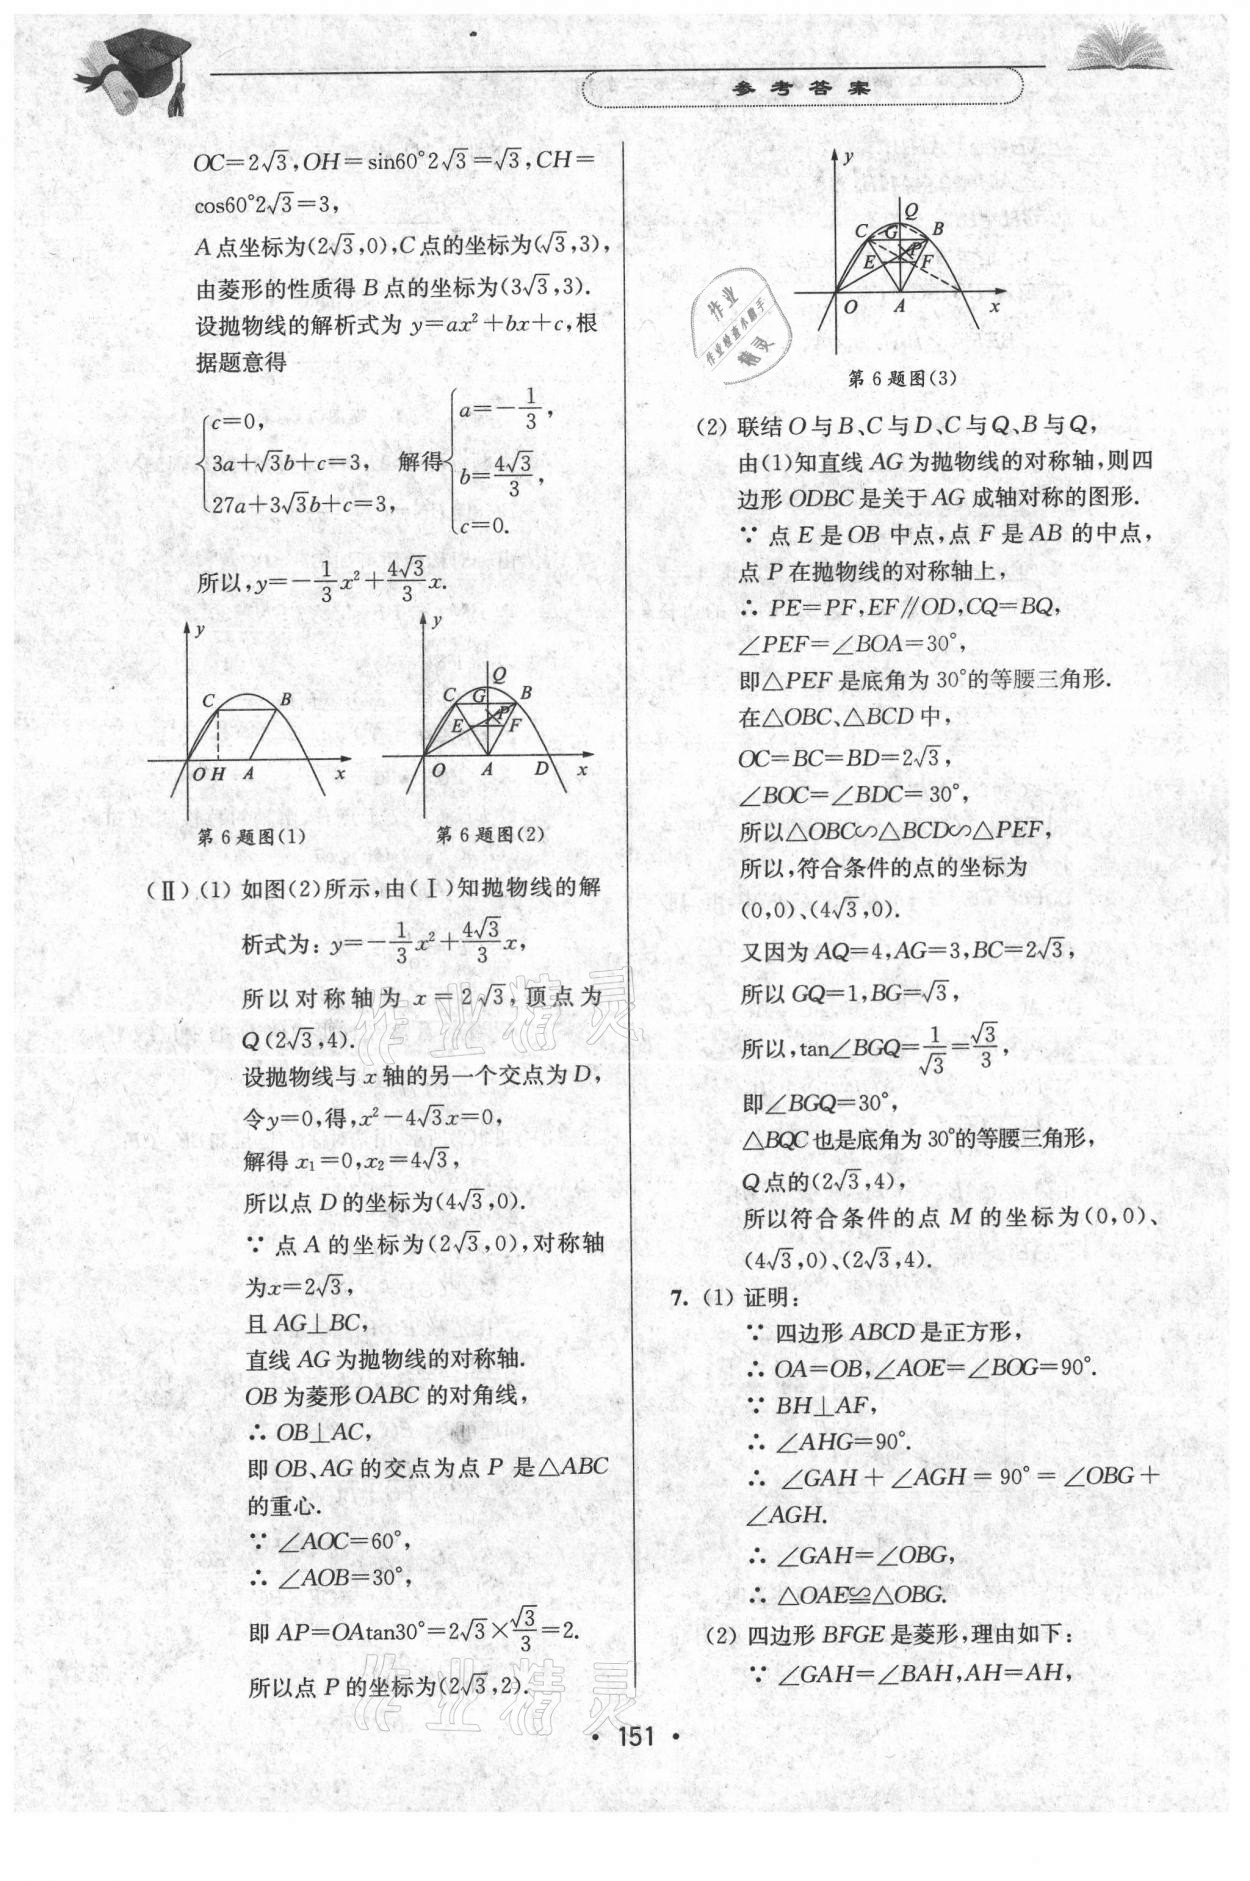 参考答案
OC=2√3,OH=sin60°2√3=√3,CH=
cos60°2√3=3,
A点坐标为(2√3,0),C点的坐标为(√3,3),
由菱形的性质得B点的坐标为(3√3,3).
设抛物线的解析式为 y=ax²+bx+c,根
据题意得
{c=0, 3a+√3b+c=3, 27a+3√3b+c=3, 解得 {a=-1/3, b=4√3/3, c=0.
所以,y=-1/3x²+4√3/3x.
y C B O H A x
第6题图(1)
y Q C G B P E F O A D x
第6题图(2)
(Ⅱ)(1) 如图(2)所示,由(Ⅰ)知抛物线的解
析式为: y=-1/3x²+4√3/3x,
所以对称轴为 x=2√3,顶点为
Q(2√3,4).
设抛物线与x轴的另一个交点为D,
令y=0,得,x²-4√3x=0,
解得 x₁=0,x₂=4√3,
所以点D的坐标为(4√3,0).
∵ 点A的坐标为(2√3,0),对称轴
为x=2√3,
且AG⊥BC,
直线AG为抛物线的对称轴.
OB为菱形OABC的对角线,
∴ OB⊥AC,
即OB、AG的交点为点P是△ABC
的重心.
∵ ∠AOC=60°,
∴ ∠AOB=30°,
即AP=OAtan30°=2√3×√3/3=2.
所以点P的坐标为(2√3,2).
y Q C G B P E F O A x
第6题图(3)
(2) 联结O与B、C与D、C与Q、B与Q,
由(1)知直线AG为抛物线的对称轴,则四
边形ODBC是关于AG成轴对称的图形.
∵ 点E是OB中点,点F是AB的中点,
点P在抛物线的对称轴上,
∴ PE=PF,EF∥OD,CQ=BQ,
∠PEF=∠BOA=30°,
即△PEF是底角为30°的等腰三角形.
在△OBC、△BCD中,
OC=BC=BD=2√3,
∠BOC=∠BDC=30°,
所以△OBC∽△BCD∽△PEF,
所以,符合条件的点的坐标为
(0,0)、(4√3,0).
又因为AQ=4,AG=3,BC=2√3,
所以GQ=1,BG=√3,
所以,tan∠BGQ=1/√3=√3/3,
即∠BGQ=30°,
△BQC也是底角为30°的等腰三角形,
Q点的(2√3,4),
所以符合条件的点M的坐标为(0,0)、
(4√3,0)、(2√3,4).
7. (1) 证明:
∵ 四边形ABCD是正方形,
∴ OA=OB,∠AOE=∠BOG=90°.
∵ BH⊥AF,
∴ ∠AHG=90°.
∴ ∠GAH+∠AGH=90°=∠OBG+
∠AGH.
∴ ∠GAH=∠OBG,
∴ △OAE≌△OBG.
(2) 四边形BFGE是菱形,理由如下:
∵ ∠GAH=∠BAH,AH=AH,
• 151 •
作业
作业检查小助手
精灵
作业精灵
作业精灵